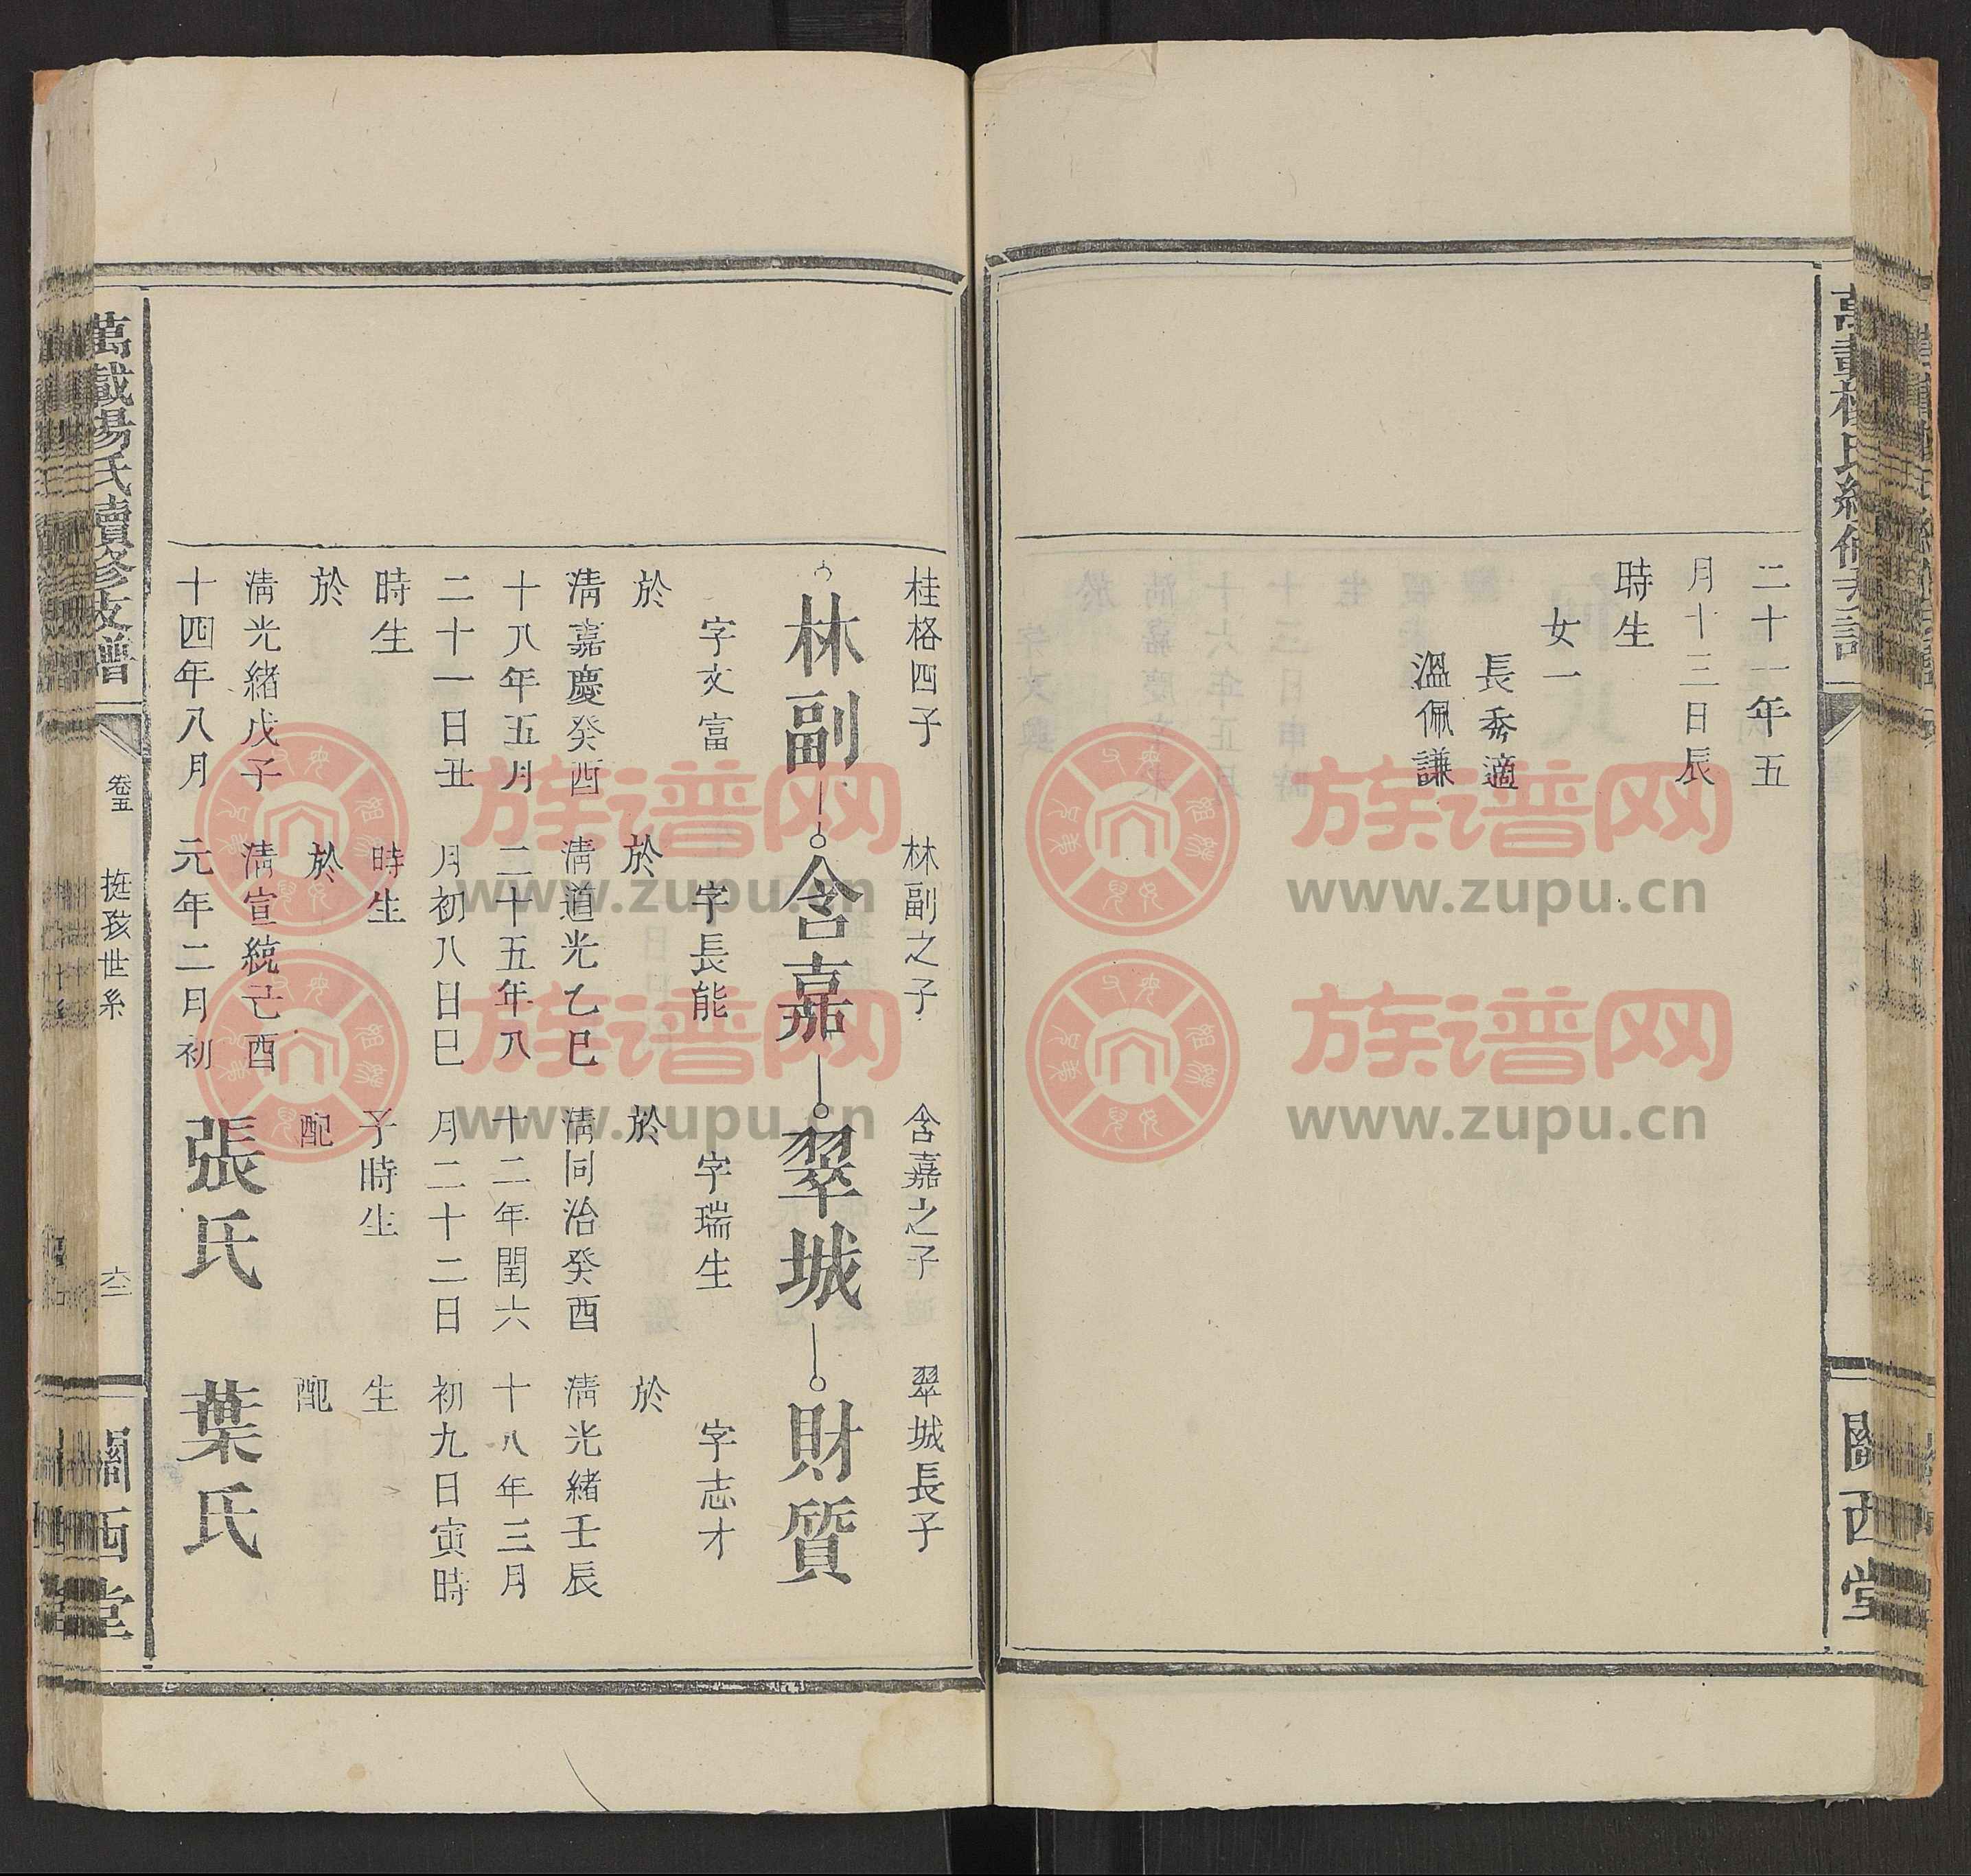 二十一年五
月十三日辰
時生
女一
長秀適
溫佩謙
桂格四子
林副
字文富
於
清嘉慶癸酉
十八年五月
二十一日丑
時生
於
清光緒戊子
十四年八月
林副之子
含嘉
字長能
於
清道光乙巳
二十五年八
月初八日巳
時生
於
清宣統己酉
元年二月初
含嘉之子
翠城
字瑞生
於
清同治癸酉
十二年閏六
月二十二日
子時生
配
張氏
翠城長子
財質
字志才
於
清光緒壬辰
十八年三月
初九日寅時
生
配
葉氏
萬載楊氏續修支譜
卷五
挺孩世系
六二
關西堂
關西堂
族谱网
www.zupu.cn
族谱网
www.zupu.cn
族谱网
www.zupu.cn
族谱网
www.zupu.cn